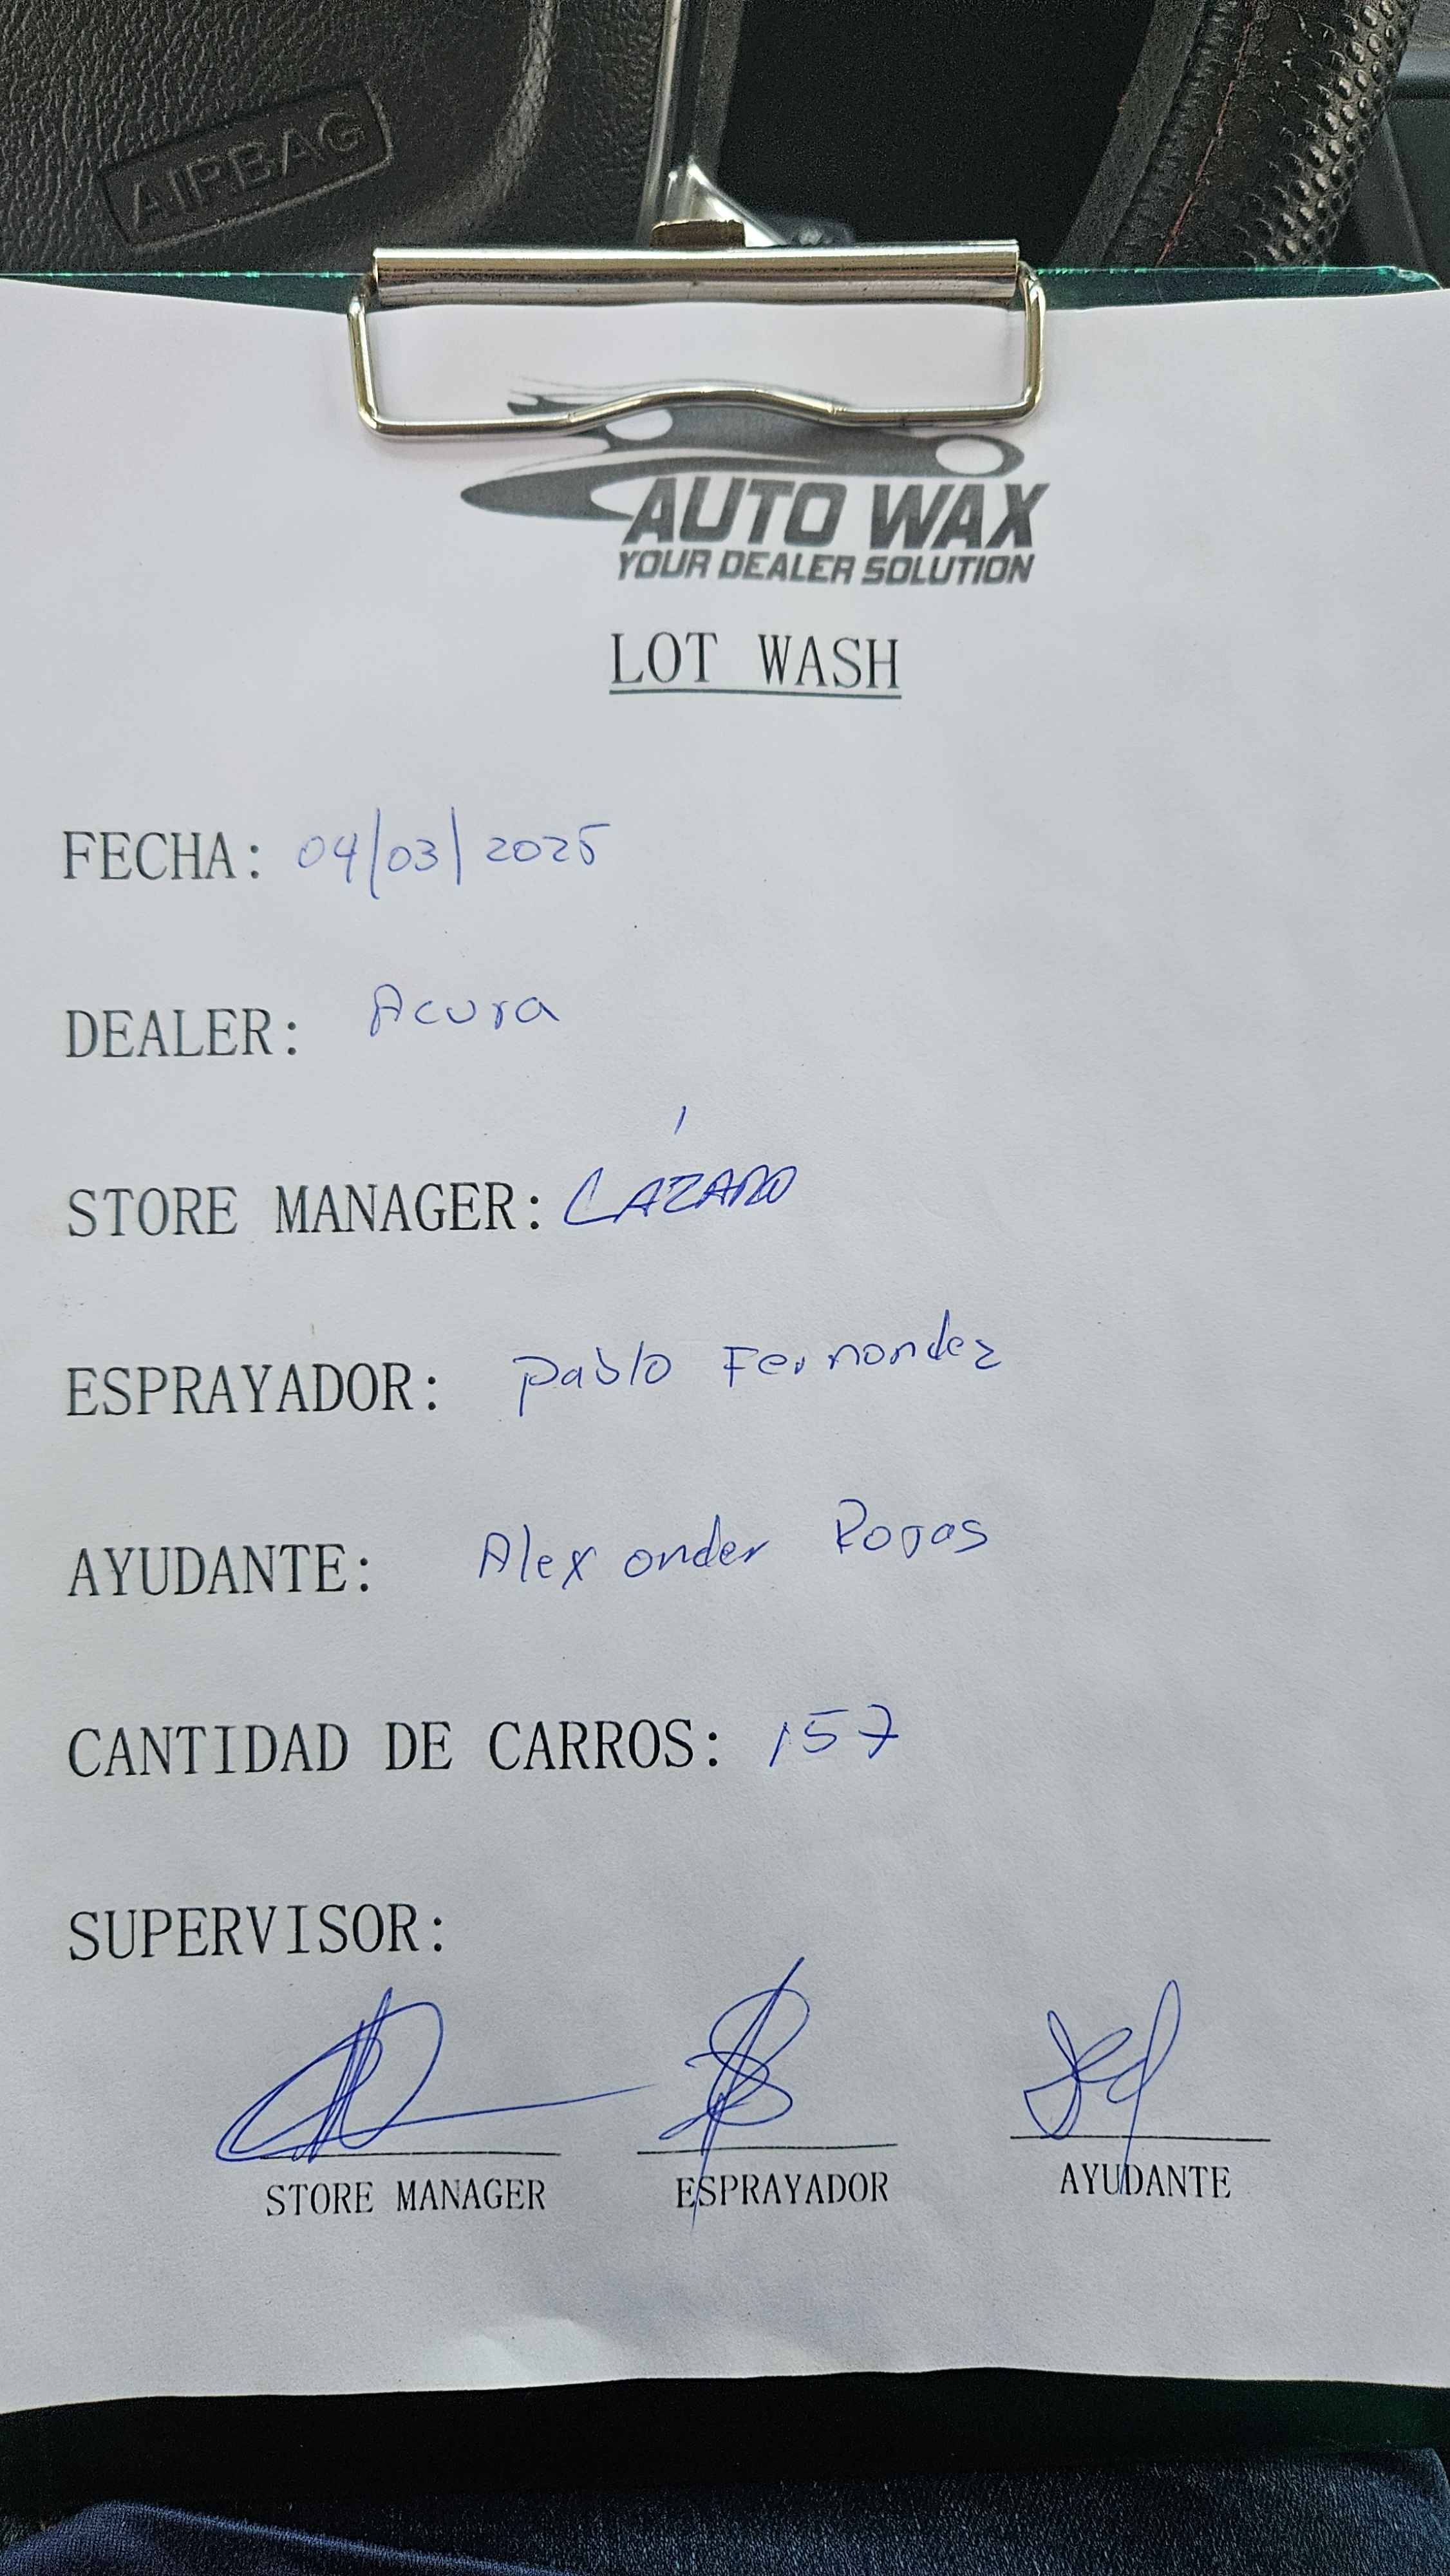 AIRBAG
AUTO WAX
YOUR DEALER SOLUTION
LOT WASH
FECHA: 04/03/2025
DEALER: Acura
STORE MANAGER: LÁZARO
ESPRAYADOR: Pablo Fernandez
AYUDANTE: Alexander Rojas
CANTIDAD DE CARROS: 157
SUPERVISOR:
STORE MANAGER ESPRAYADOR AYUDANTE